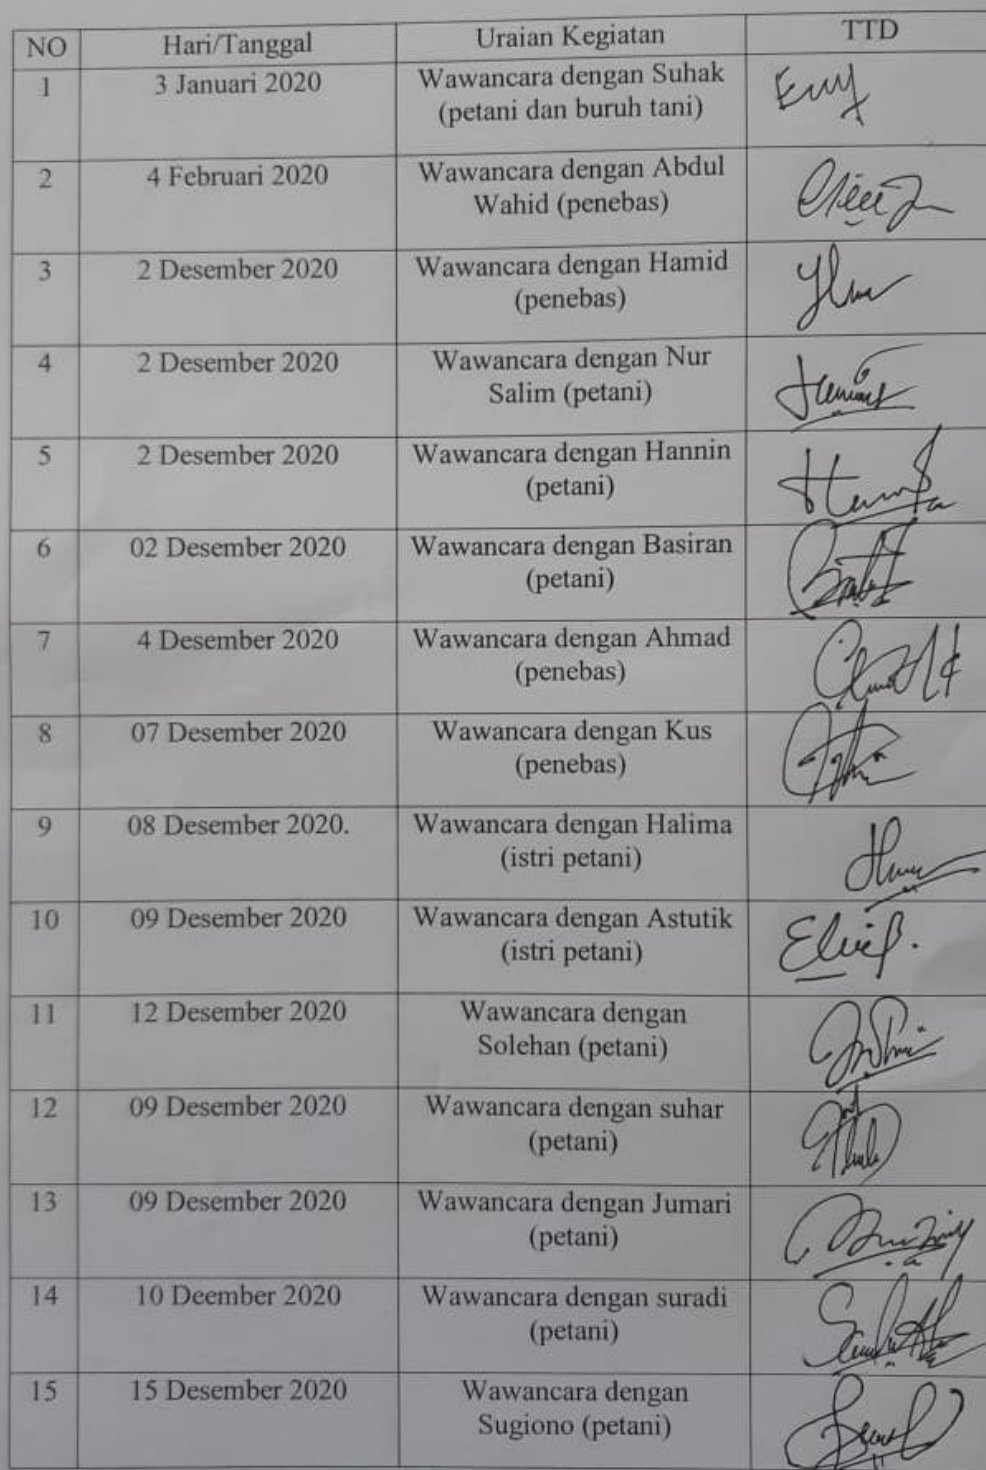 NO Hari/Tanggal Uraian Kegiatan TTD
1 3 Januari 2020 Wawancara dengan Suhak
(petani dan buruh tani)
2 4 Februari 2020 Wawancara dengan Abdul
Wahid (penebas)
3 2 Desember 2020 Wawancara dengan Hamid
(penebas)
4 2 Desember 2020 Wawancara dengan Nur
Salim (petani)
5 2 Desember 2020 Wawancara dengan Hannin
(petani)
6 02 Desember 2020 Wawancara dengan Basiran
(petani)
7 4 Desember 2020 Wawancara dengan Ahmad
(penebas)
8 07 Desember 2020 Wawancara dengan Kus
(penebas)
9 08 Desember 2020. Wawancara dengan Halima
(istri petani)
10 09 Desember 2020 Wawancara dengan Astutik
(istri petani)
11 12 Desember 2020 Wawancara dengan
Solehan (petani)
12 09 Desember 2020 Wawancara dengan suhar
(petani)
13 09 Desember 2020 Wawancara dengan Jumari
(petani)
14 10 Deember 2020 Wawancara dengan suradi
(petani)
15 15 Desember 2020 Wawancara dengan
Sugiono (petani)